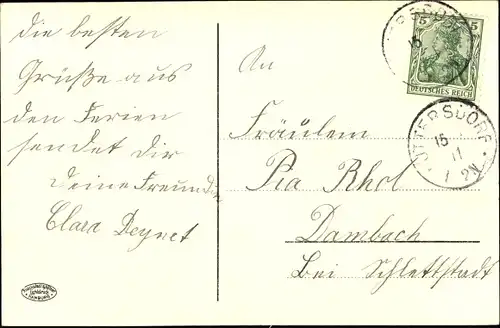 Die besten
Grüße aus
den Ferien
sendet Dir
Deine Freundin
Clara Reynet
An
Fräulein
Pia Rhol
Dambach
Bei Schlettstadt
5
5
DEUTSCHES REICH
ITTERSDORF
15
11
1-2N